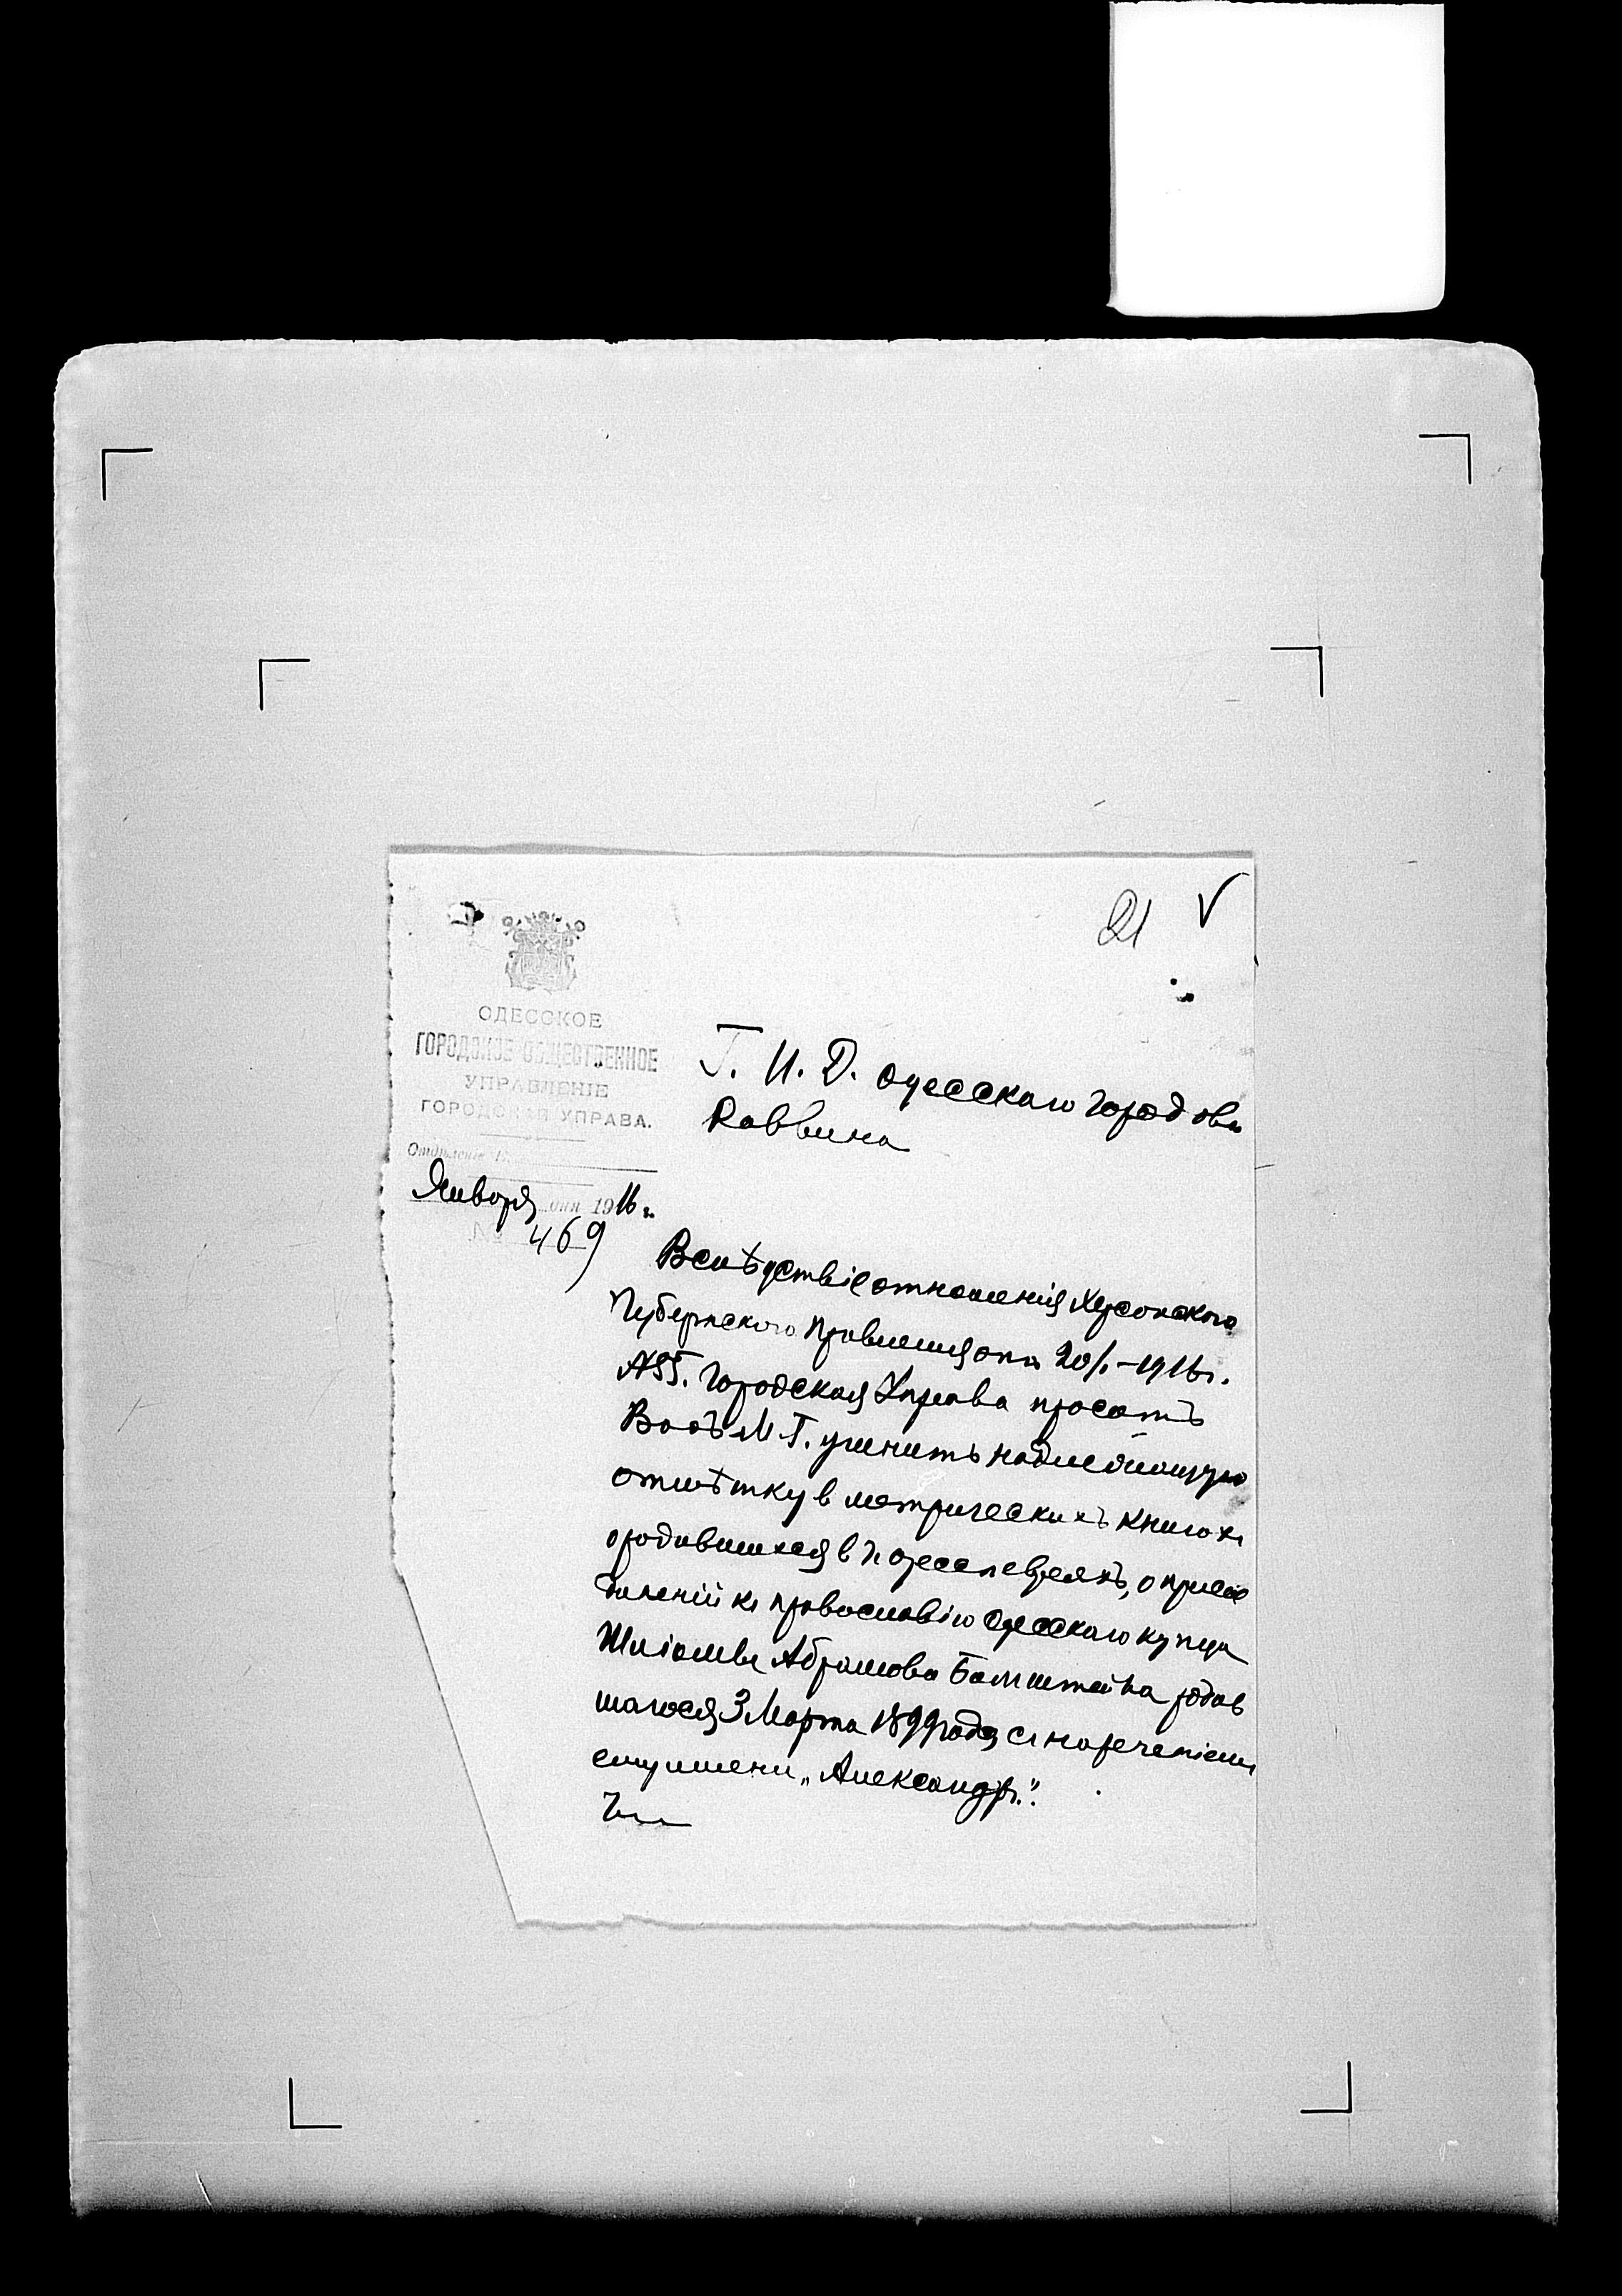 21 V
ОДЕССКОЕ
ГОРОДСКОЕ ОБЩЕСТВЕННОЕ
УПРАВЛЕНІЕ
ГОРОДСКАЯ УПРАВА.
Отдѣленіе
Января дня 1916 г.
№ 469
Г. И. Д. Одесскаго Городов
Раввина
Вслѣдствіе отношенія Херсонскаго
Губернскаго Правленія отъ 20/1 – 1916 г.
Городская Управа проситъ
Васъ М. Г. учинить надлежащую
отмѣтку в метрическихъ книгах
о родившихся в г. Одессе евреяхъ, о присое
диненіи къ православію Одесскаго купца
Шліомы Абрамова Бамштейна родив
шагося 3 Марта 1899 года съ нареченіем
ему имени „Александръ".